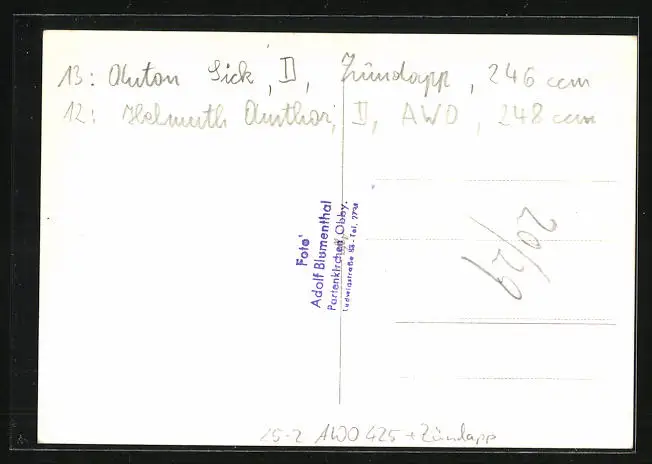 13: Anton Sick, D, Zündapp, 246 ccm
12: Helmuth Amthor, D, AWO, 248 ccm
Foto
Adolf Blumenthal
Partenkirchen Obby.
Ludwigstraße 83 - Tel. 2794
20/29
25-2 AWO 425 + Zündapp